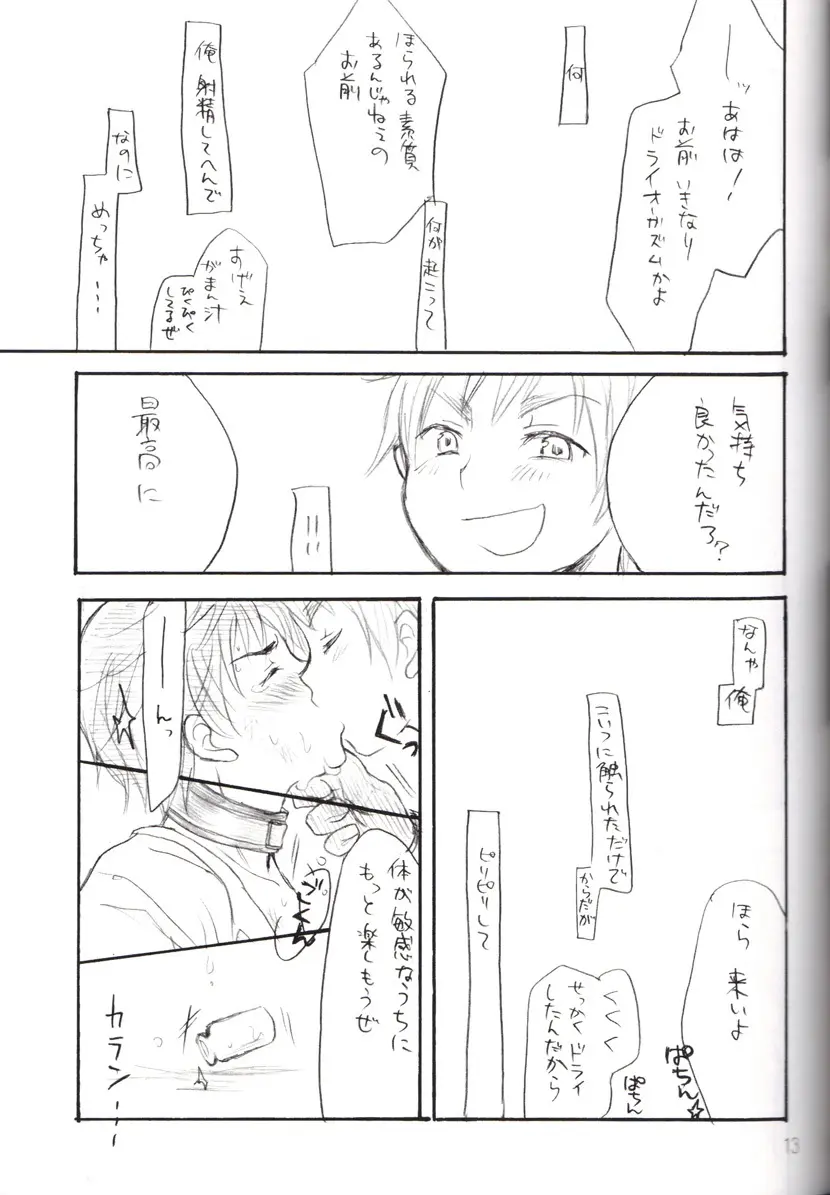 ーーッ
あはは!
お前 いきなり
ドライオーガズムかよ
何
ほられる素質
あるんじゃねえの
お前
何が起こって
俺 射精してへんで
すげえ
がまん汁
ぴくぴく
してるぜ
なのに
めっちゃ…
気持ち
良かったんだろ?
!!
最高に
なんや
俺
こいつに触られただけで
からだが
ピリピリして
ほら 来いよ
ぱちん
くくく
せっかくドライ
したんだから
ぱちん
体が敏感なうちに
もっと楽しもうぜ
ぐっ
ーーんっ
ごくん
カラン…
13